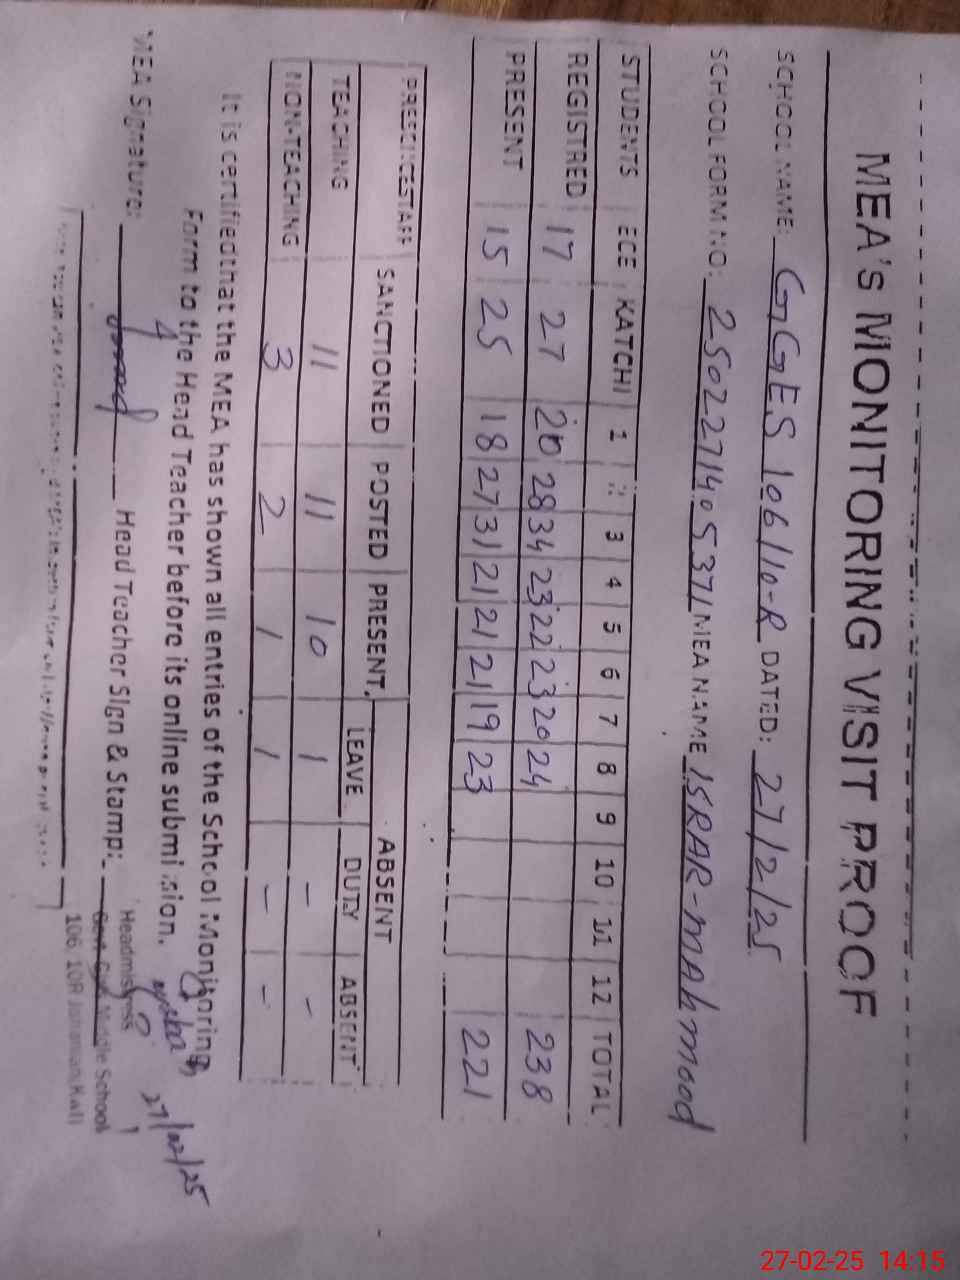 MEA's MONITORING VISIT PROOF
SCHOOL NAME: GGES 106/10-R DATED: 27/2/25
SCHOOL FORM NO: 2502271405371 MEA NAME ISRAR-MAhmood
STUDENTS ECE KATCHI 1 2 3 4 5 6 7 8 9 10 11 12 TOTAL
REGISTRED 17 27 20 28 34 23 22 23 20 24 238
PRESENT 15 25 18 27 31 21 21 21 19 23 221
SANCTIONED POSTED PRESENT ABSENT
LEAVE DUTY ABSENT
TEACHING 11 11 10 1 - -
NON-TEACHING 3 2 1 1 - -
It is certified that the MEA has shown all entries of the School Monitoring
Form to the Head Teacher before its online submission.
MEA Signature: Head Teacher Sign & Stamp:
27/02/25
Headmistress
Govt. Girls Middle School
106 10R Jahanian
27-02-25 14:15